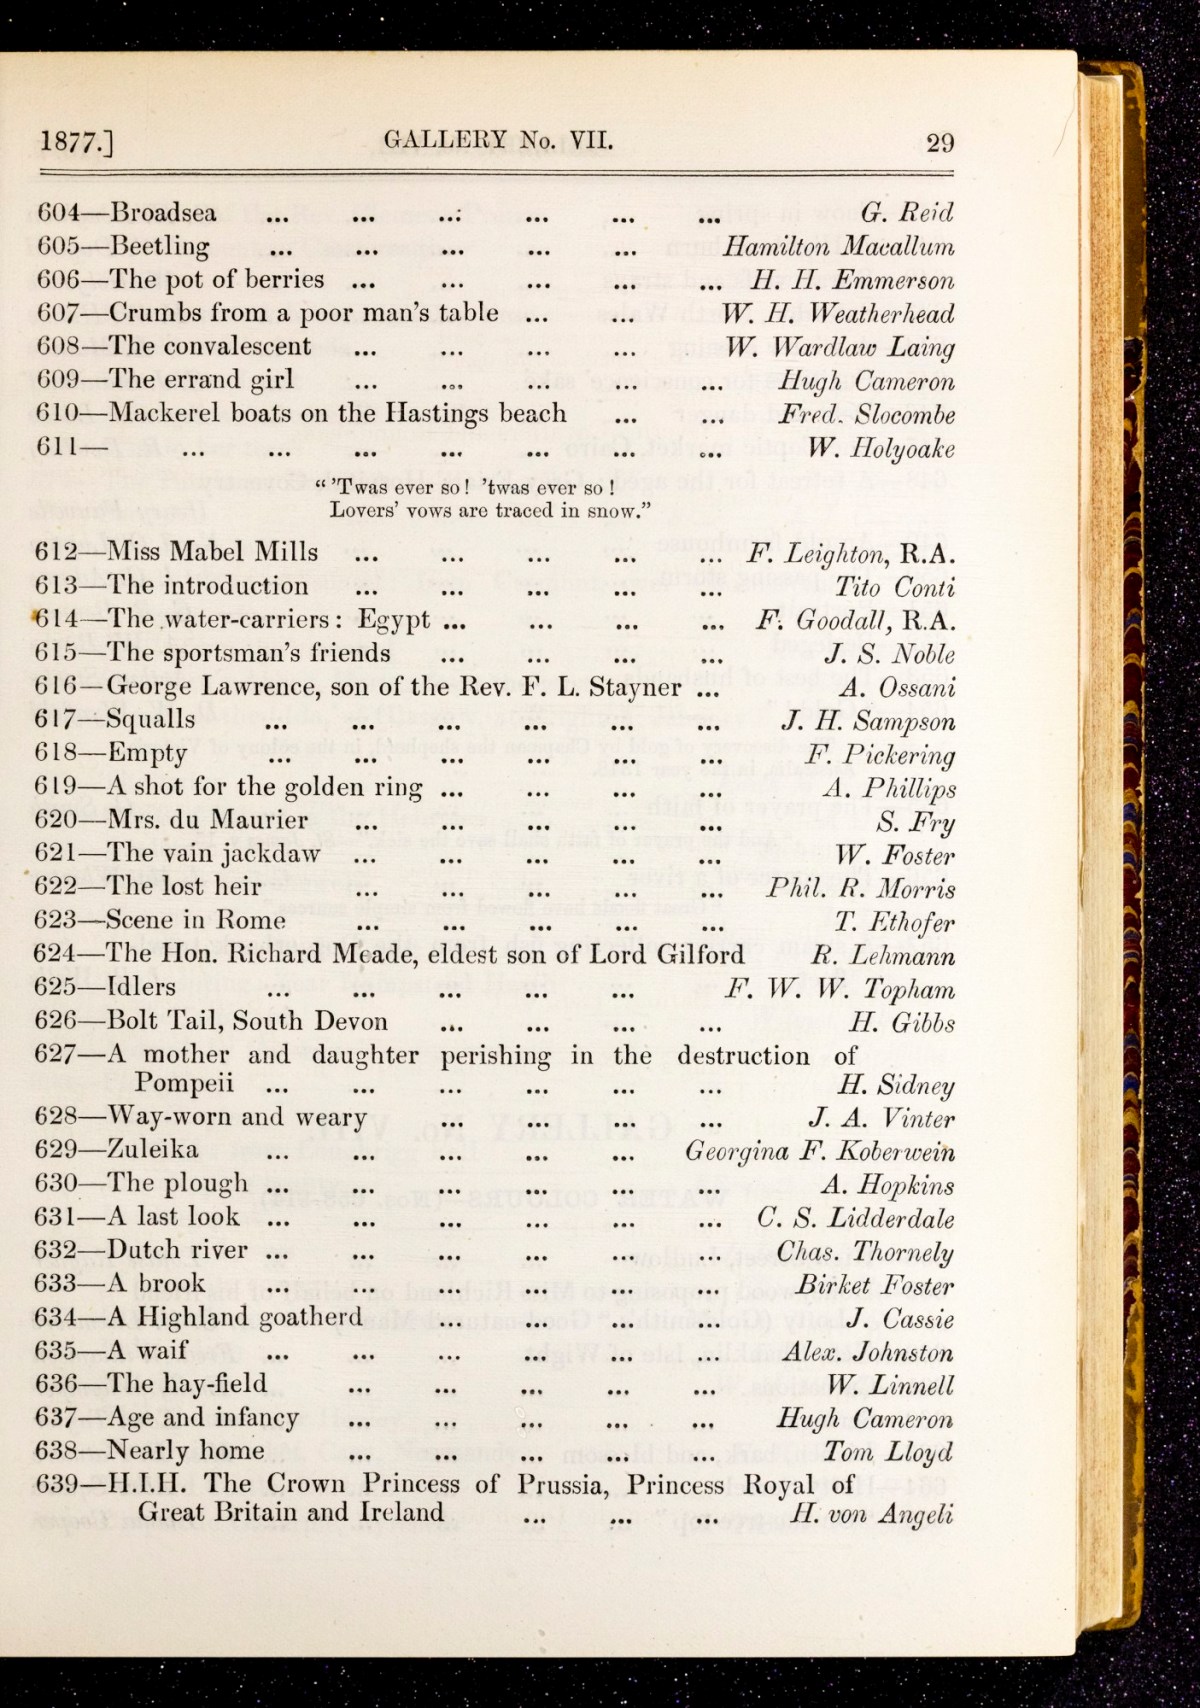 1877.] GALLERY No. VII. 29
604—Broadsea ... ... ... ... ... ... G. Reid
605—Beetling ... ... ... ... ... Hamilton Macallum
606—The pot of berries ... ... ... ... ... H. H. Emmerson
607—Crumbs from a poor man's table ... ... W. H. Weatherhead
608—The convalescent ... ... ... ... W. Wardlaw Laing
609—The errand girl ... ... ... ... ... Hugh Cameron
610—Mackerel boats on the Hastings beach ... ... Fred. Slocombe
611— ... ... ... ... ... ... ... W. Holyoake
“ 'Twas ever so! 'twas ever so!
Lovers' vows are traced in snow.”
612—Miss Mabel Mills ... ... ... ... ... F. Leighton, R.A.
613—The introduction ... ... ... ... ... Tito Conti
614—The water-carriers: Egypt ... ... ... ... F. Goodall, R.A.
615—The sportsman's friends ... ... ... ... J. S. Noble
616—George Lawrence, son of the Rev. F. L. Stayner ... A. Ossani
617—Squalls ... ... ... ... ... ... J. H. Sampson
618—Empty ... ... ... ... ... ... F. Pickering
619—A shot for the golden ring ... ... ... ... A. Phillips
620—Mrs. du Maurier ... ... ... ... ... S. Fry
621—The vain jackdaw ... ... ... ... ... W. Foster
622—The lost heir ... ... ... ... ... Phil. R. Morris
623—Scene in Rome ... ... ... ... ... T. Ethofer
624—The Hon. Richard Meade, eldest son of Lord Gilford R. Lehmann
625—Idlers ... ... ... ... ... F. W. W. Topham
626—Bolt Tail, South Devon ... ... ... ... H. Gibbs
627—A mother and daughter perishing in the destruction of
Pompeii ... ... ... ... ... ... H. Sidney
628—Way-worn and weary ... ... ... ... J. A. Vinter
629—Zuleika ... ... ... ... ... Georgina F. Koberwein
630—The plough ... ... ... ... ... ... A. Hopkins
631—A last look ... ... ... ... ... ... C. S. Lidderdale
632—Dutch river ... ... ... ... ... ... Chas. Thornely
633—A brook ... ... ... ... ... ... Birket Foster
634—A Highland goatherd ... ... ... ... J. Cassie
635—A waif ... ... ... ... ... ... Alex. Johnston
636—The hay-field ... ... ... ... ... W. Linnell
637—Age and infancy ... ... ... ... ... Hugh Cameron
638—Nearly home ... ... ... ... ... Tom Lloyd
639—H.I.H. The Crown Princess of Prussia, Princess Royal of
Great Britain and Ireland ... ... ... H. von Angeli